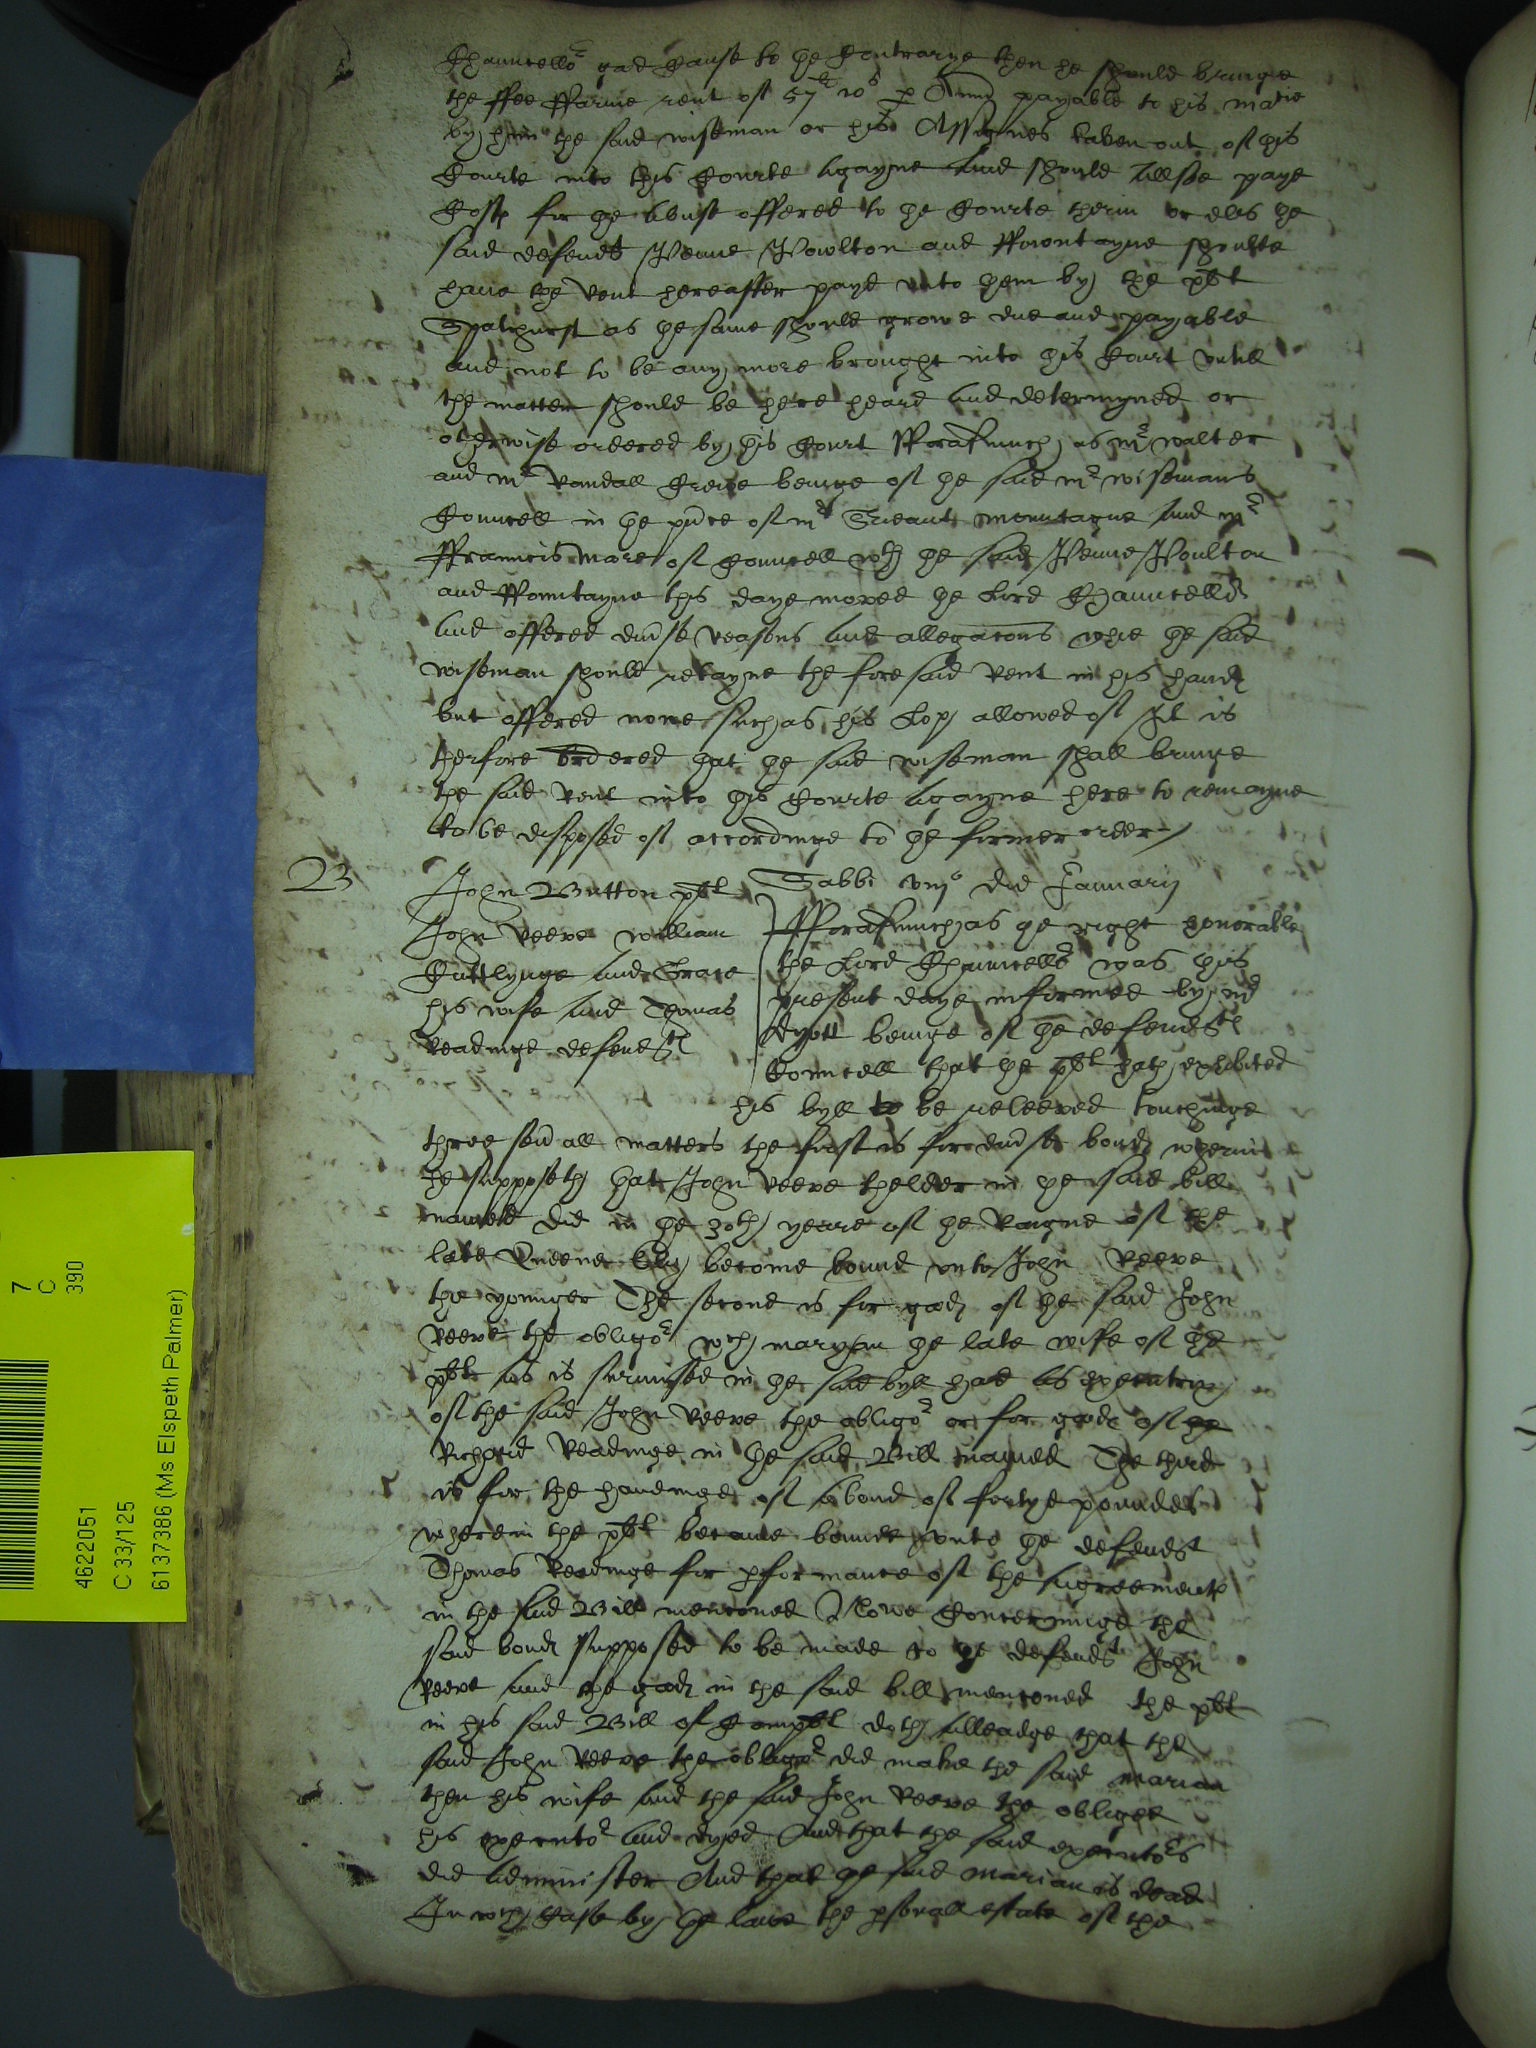 Chauncellor had cause to the Contrarye then he should bringe
the ffee ffarme rent of 57li 10s p Annu payable to his matie
by him the said wiseman or his Assignes taken out of this
Courte into this Courte agayne And should allsoe paye
Costs for the abuse offered to the Courte therin or els the
said defendts Penne Powlton and ffountayne shoulde
have the Rent hereafter payd unto them by the plt
Spathurst as the same should growe due and payable
and not to be any more brought into this Court untill
the matter should be here heard and determyned or
otherwise ordered by this Court fforasmuch as mr walter
and mr Randall Crewe beinge of the said mr wisemans
Councell in the pnce of mr Srieant mountague and mr
ffrauncis more of Councell wth the said Penne Poulton
and ffountayne this daye moved the Lord Chauncellor
and offered divse reasons and allegacons whie the said
wiseman should retayne the foresaid Rent in his hands
but offered none such as his Lop allowed of It is
therfore ordered that the said wiseman shall bringe
the said Rent into this Courte agayne here to remayne
to be disposed of accordinge to the former order
23
John Button plt
John Reeve william
Cuttlynge and Grace
his wife and Thomas
Readinge defendts
Sabbi viijo die Januarij
fforasmuch as the right honorable
the Lord Chauncellor was this
present daye informed by mr
dyott beinge of the defendts
Councell that the plt hath exhibited
his byll to be releeved touchinge
three sevall matters the first is for divse bonds wherin
he supposeth that John Reeve thelder in the said bill
named did in the 30th yeare of the Raigne of the
late Queene Eliz become bound unto John Reeve
the younger The second is for goods of the said John
Reeve the obligor wch maryan the late wife of the
plt as is surmised in the said byll had as executrix
of the said John Reeve the obligor or for goods of the
Richard Readinge in the said Bill named The third
is for the havinge of a bond of fortye pounds
wherein the plt became bounde unto the defendt
Thomas Readinge for pformance of the Agreements
in the said Bill mencioned Nowe Concerninge the
said bonds supposed to be made to the defendt John
Reeve and the goods in the said bill mencioned the plt
in his said Bill of Complt doth alleadge that the
said John Reeve the obligor did make the said marian
then his wife and the said John Reeve the obligee
his executors and dyed And that the said executors
did administer And that the said marian is dead
In wch Case by the lawe the psonall estate of the
7
C
390
4622051
C 33/125
6137386 (Ms Elspeth Palmer)